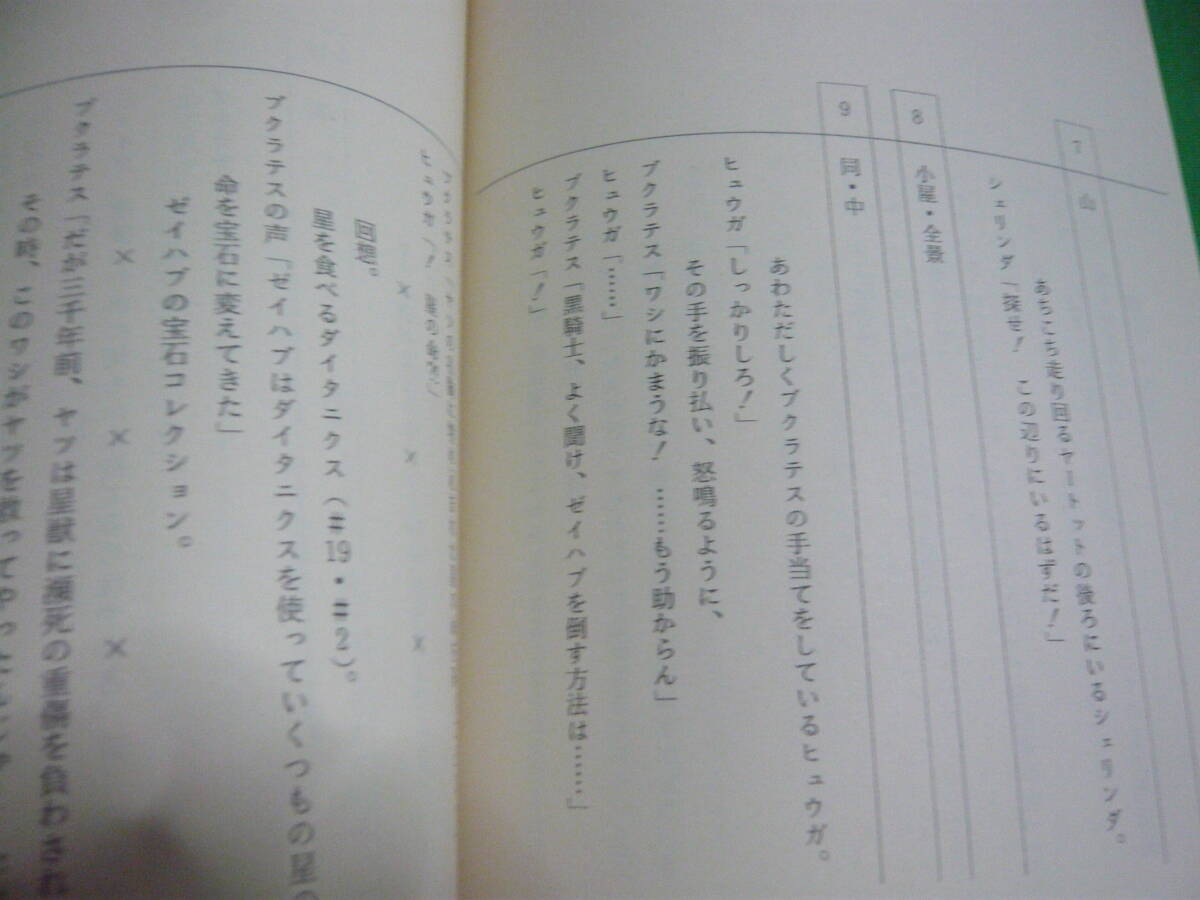 7 山
あちこち走り回るヤートットの後ろにいるシェリンダ。
シェリンダ「探せ！ この辺りにいるはずだ！」
8 小屋・全景
9 同・中
あわただしくブクラテスの手当てをしているヒュウガ。
ヒュウガ「しっかりしろ！」
その手を振り払い、怒鳴るように、
ブクラテス「ワシにかまうな！ ……もう助からん」
ヒュウガ「……」
ブクラテス「黒騎士、よく聞け、ゼイハブを倒す方法は……」
ヒュウガ「！」
ヒュウガ「！
× × ×
回想。
星を食べるダイタニクス（＃19・＃2）。
ブクラテスの声「ゼイハブはダイタニクスを使っていくつもの星の
命を宝石に変えてきた」
ゼイハブの宝石コレクション。
× × ×
ブクラテス「だが三千年前、ヤツは星獣に瀕死の重傷を負わされ
その時、このワシがヤツを救ってやった